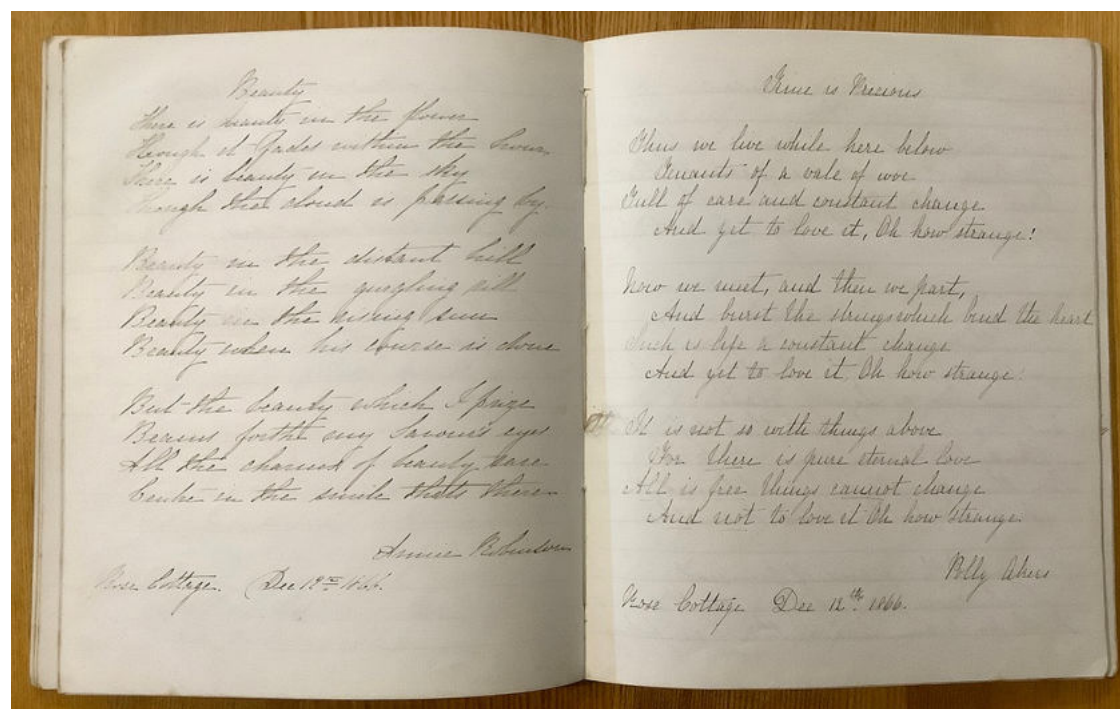 Beauty
There is beauty in the flower
Though it fades within the hour
There is beauty in the sky
Though the cloud is passing by.
Beauty in the distant hill
Beauty in the gurgling rill
Beauty in the rising sun
Beauty when his course is done
But the beauty which I prize
Beams forth my Saviour's eyes
All the charms of beauty rare
Centre in the smile thats there
Annie Robinson
Rose Cottage. Dec 12th 1866.
Time is Precious
Thus we live while here below
Tenants of a vale of woe
Full of care and constant change
And yet to love it, Oh how strange!
Now we meet, and then we part,
And burst the strings which bind the heart
Such is life a constant change
And yet to love it Oh how strange.
It is not so with things above
For there is pure eternal love
All is free things cannot change
And not to love it Oh how strange.
Polly Akers
Rose Cottage Dec 12th 1866.